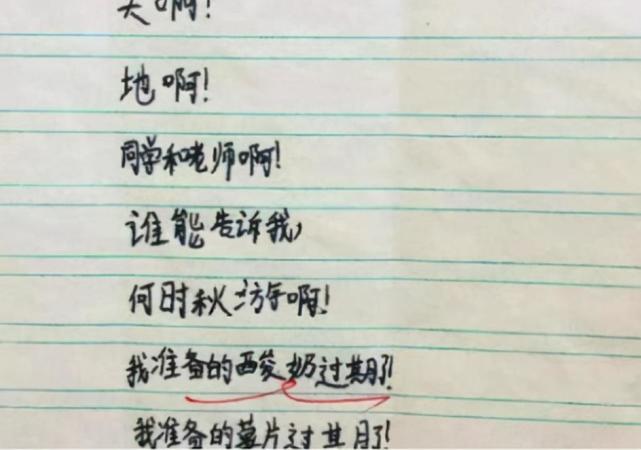 天啊!
地啊!
同学和老师啊!
谁能告诉我,
何时秋游啊!
我准备的酸奶过期了!
我准备的薯片过期了!